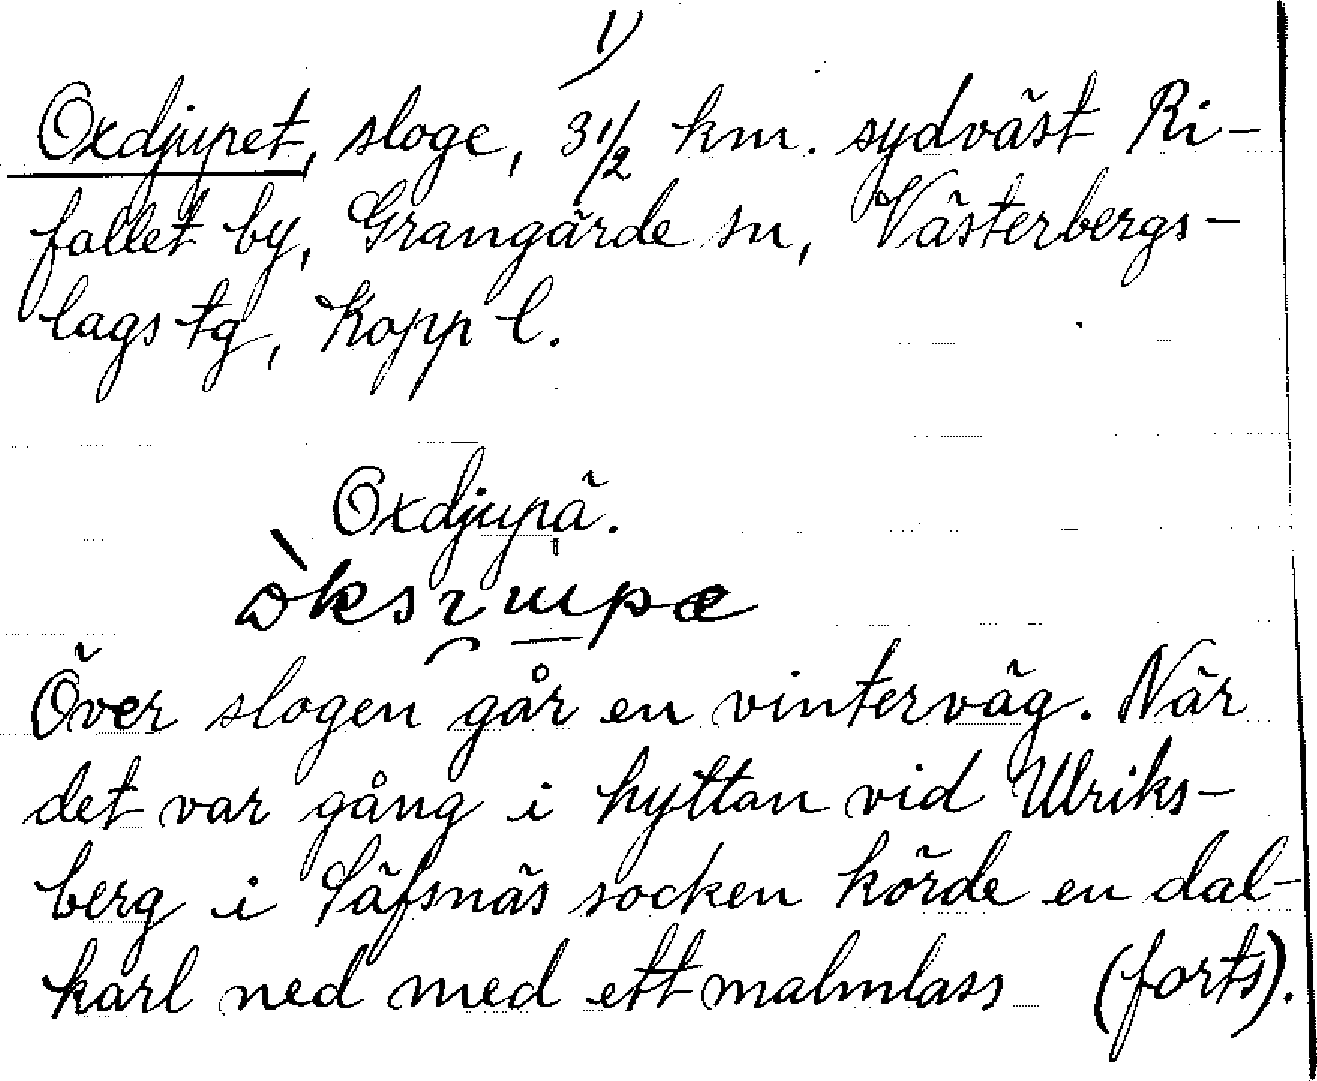 1)
Oxdjupet, sloge, 3 1/2 km. sydväst Ri-
fallet by, Grangärde sn, Västerbergs-
lags tg, Kopp l.
Oxdjupä.
Över slogen går en vinterväg. När
det var gång i hyttan vid Ulriks-
berg i Säfsnäs socken körde en dal-
karl ned med ett malmlass (forts).